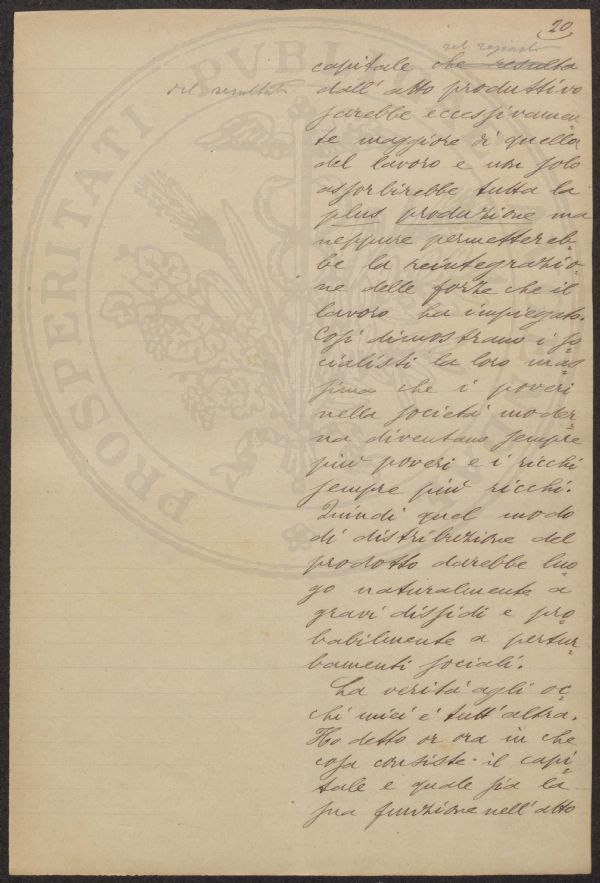 20
capitale che resulta
del resultato
dall' atto produttivo
sarebbe eccessivamen
te maggiore di quella
del lavoro e non solo
assorbirebbe tutta la
plus produzione ma
neppure permettereb-
be la reintegrazio-
ne delle forze che il
lavoro ha impiegato.
Così dimostrano i so-
cialisti la loro mas
sima che i poveri
nella società moder-
na diventano sempre
più poveri e i ricchi
sempre più ricchi.
Quindi quel modo
di distribuzione del
prodotto darebbe luo
go naturalmente a
gravi dissidi e pro-
babilmente a pertur-
bamenti sociali.
La verità agli oc-
chi miei è tutt' altra.
Ho detto or ora in che
cosa consiste il capi-
tale e quale sia la
sua funzione nell' atto
PROSPERITATI PUBLICAE